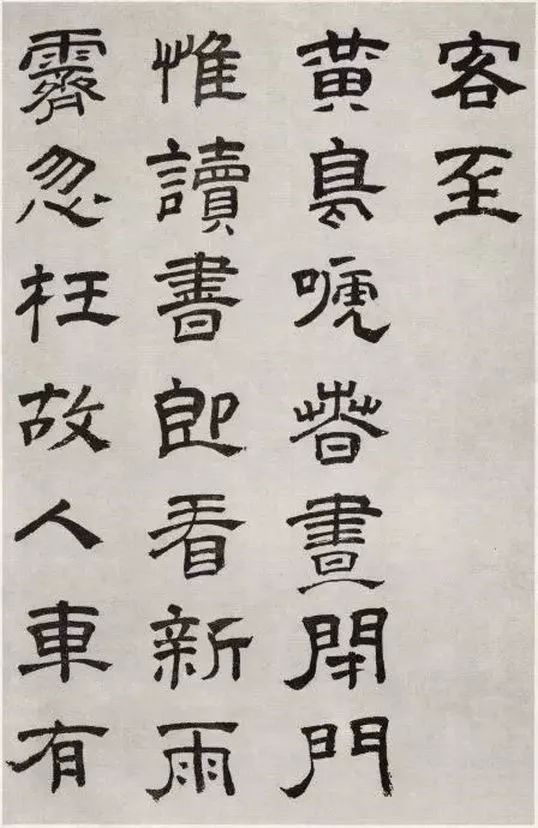 客至
黃鳥嗁春晝閉門
惟讀書即看新雨
霽忽枉故人車有